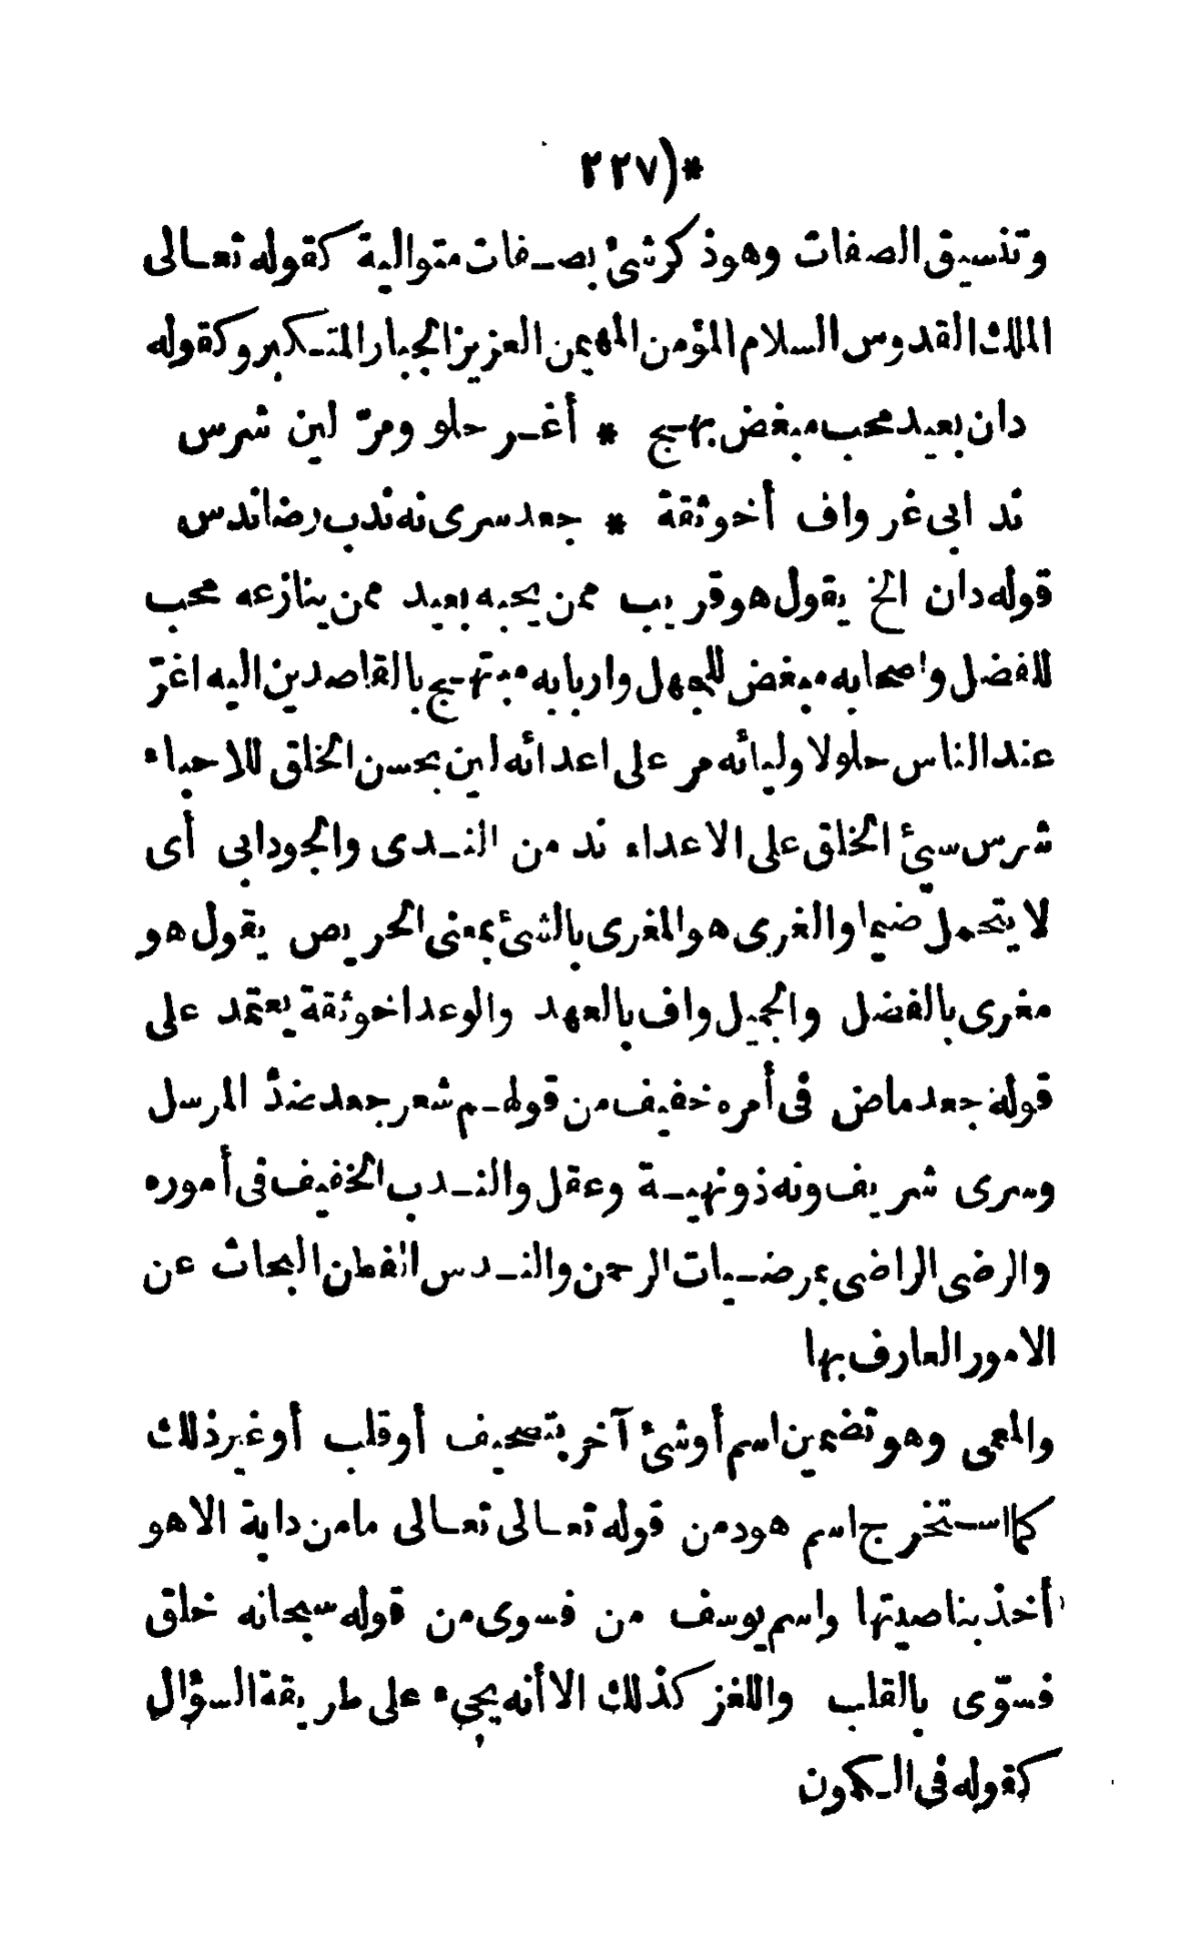 *(٢٢٧
وتنسيق الصفات وهو ذكر شئ بصفات متوالية كقوله تعالى
الملك القدوس السلام المؤمن المهيمن العزيز الجبار المتكبر وكقوله
دان بعيد محب مبغض بهج * أغر حلو ومرّ لين شرس
ند ابى غر واف أخو ثقة * جعد سرى نه ندب رضا ندس
قوله دان الخ يقول هو قريب ممن يحبه بعيد ممن ينازعه محب
للفضل واصحابه مبغض للجهل واربابه مبتهج بالقاصدين اليه اغرّ
عند الناس حلو لاوليائه مر على اعدائه لين بحسن الخلق للاحباء
شرس سيئ الخلق على الاعداء ند من الندى والجود ابى أى
لا يتحمل ضيما والغرى هو المغرى بالشئ بمعنى الحريص يقول هو
مغرى بالفضل والجميل واف بالعهد والوعد اخو ثقة يعتمد على
قوله جعد ماض فى أمره خفيف من قولهم شعر جعد ضدّ المرسل
وسرى شريف ونه ذو نهية وعقل والندب الخفيف فى أموره
والرضى الراضى بمرضيات الرحمن والندس الفطن البحاث عن
الامور العارف بها
والمعمى وهو تضمين اسم أو شئ آخر بتصحيف أو قلب أو غير ذلك
كما استخرج اسم هود من قوله تعالى تعالى ما من دابة الا هو
أخذ بناصيتها واسم يوسف من فسوى من قوله سبحانه خلق
فسوّى بالقلب واللغز كذلك الا أنه يجيء على طريقة السؤال
كقوله فى الكمون